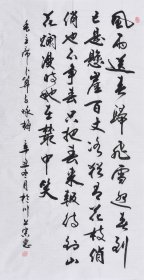 風雨送春歸飛雪迎春到
已是懸崖百丈冰猶有花枝俏
俏也不争春只把春来報待到山
花爛漫時她在叢中笑
毛主席卜算子咏梅